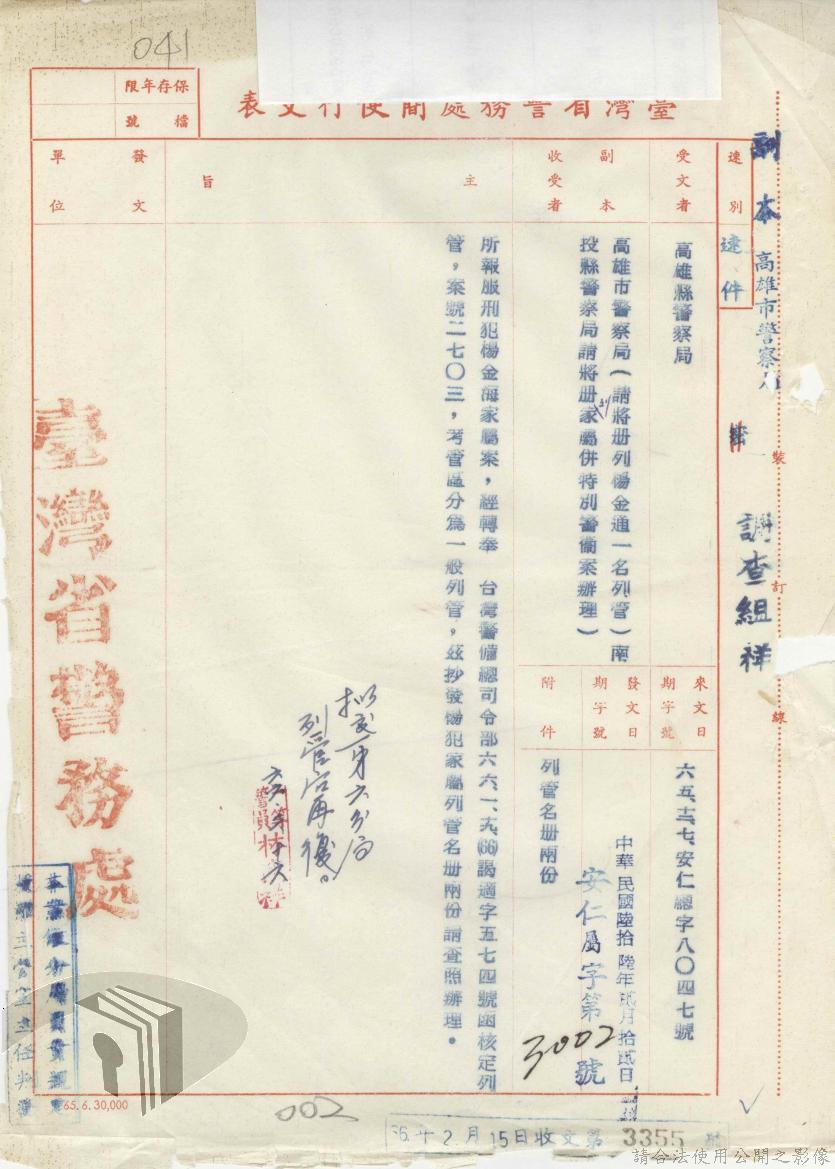 041
臺灣省警務處簡便行文表
保存年限
檔號
副本
高雄市警察局
調查組 祥
裝
訂
線
速別
速件
受文者
高雄縣警察局
副本收受者
高雄市警察局(請將册列楊金通一名列管)南
投縣警察局請將册列家屬併特別警衞案辦理)
來文日期字號
六五、三、七、安仁總字八〇四七號
發文日期字號
中華民國陸拾陸年貳月拾貳日
安仁屬字第3002號
附件
列管名册兩份
主旨
所報服刑犯楊金海家屬案,經轉奉 台灣警備總司令部六六、一、九(66)謁適字五七四號函核定列
管,案號二七〇三,考管區分為一般列管,玆抄發楊犯家屬列管名册兩份請查照辦理。
擬交第六分局
列管后再復。
發文單位
臺灣省警務處
本案經分層負責規定
授權主管室主任判發
65.6.30,000
002
66年2月15日收文第3355號
請合法使用公開之影像